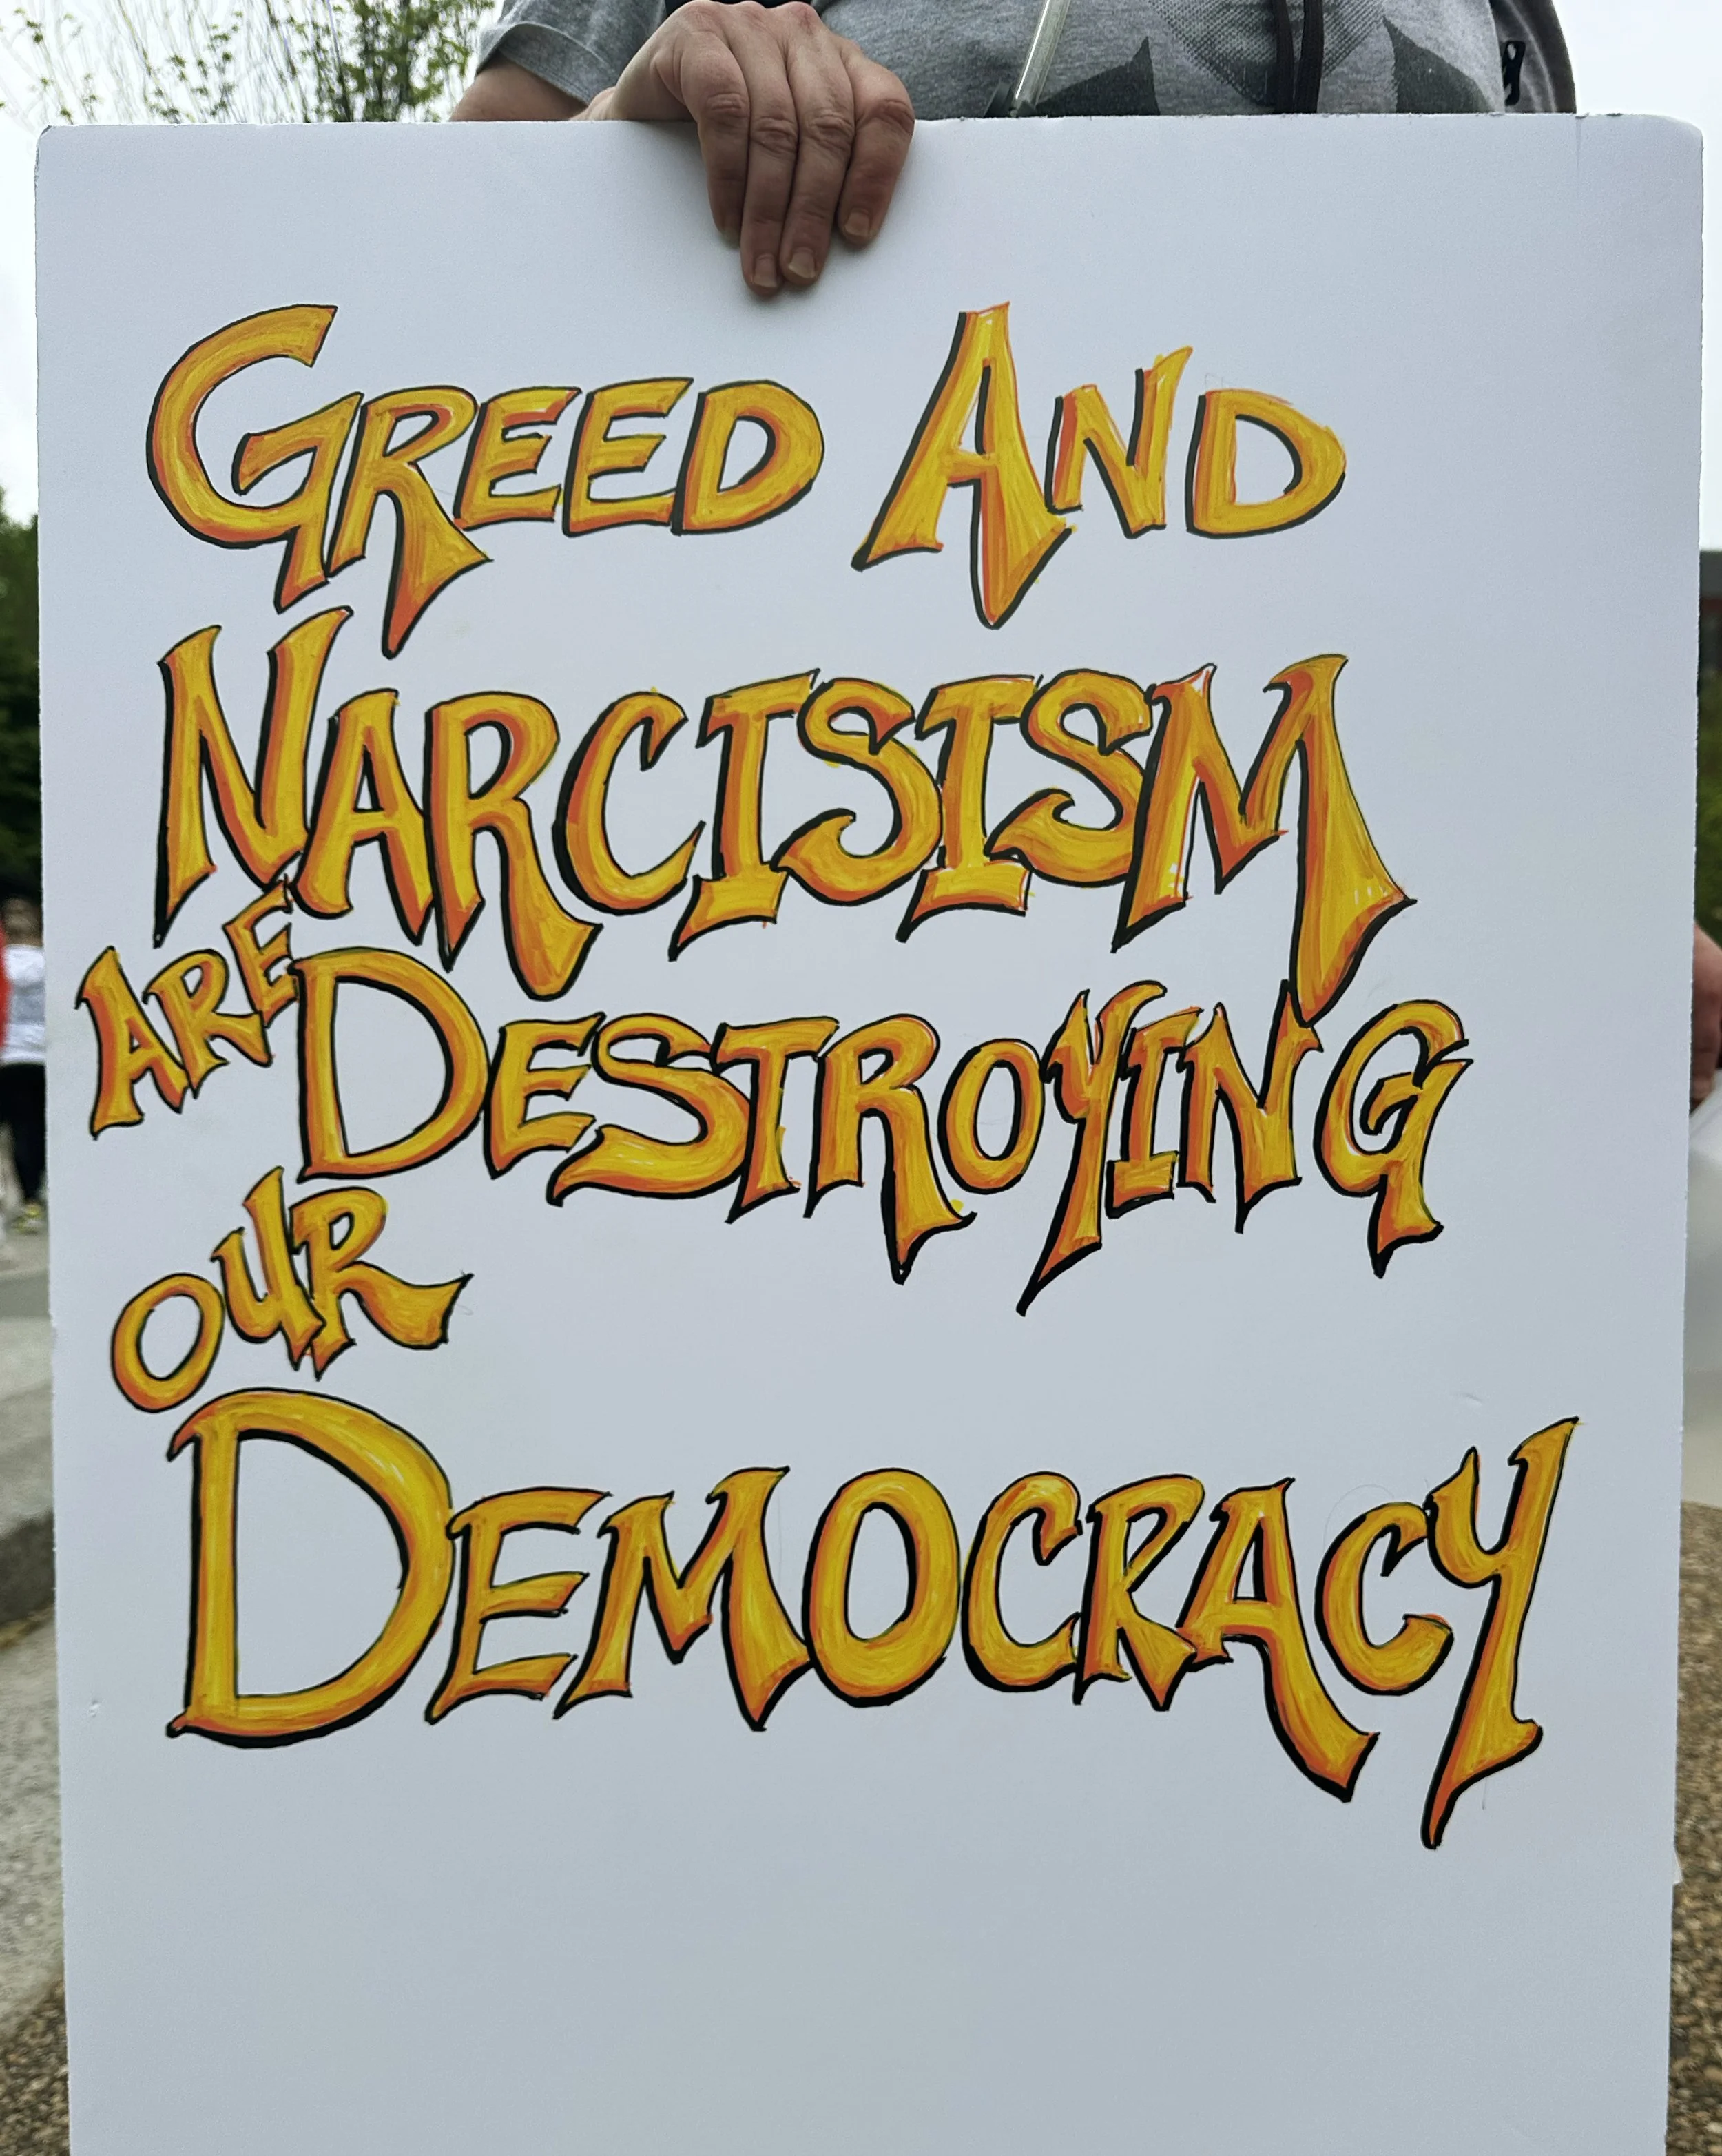 GREED AND
NARCISISM
ARE DESTROYING
OUR
DEMOCRACY